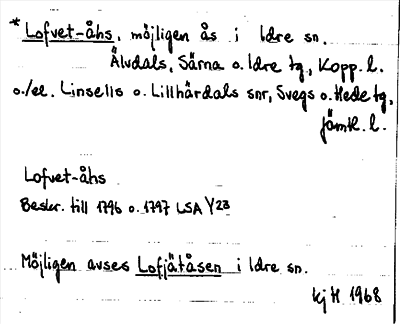 * Lofvet-åhs, möjligen ås i Idre sn.
Älvdals, Särna o. Idre tg., Kopp. l.
o./el. Linsells o. Lillhärdals snr, Svegs o. Hede tg,
Jämtl. l.
Lofvet-åhs
Beskr. till 1796 o. 1797 LSA Y23
Möjligen avses Lofjätåsen i Idre sn.
kj H 1968